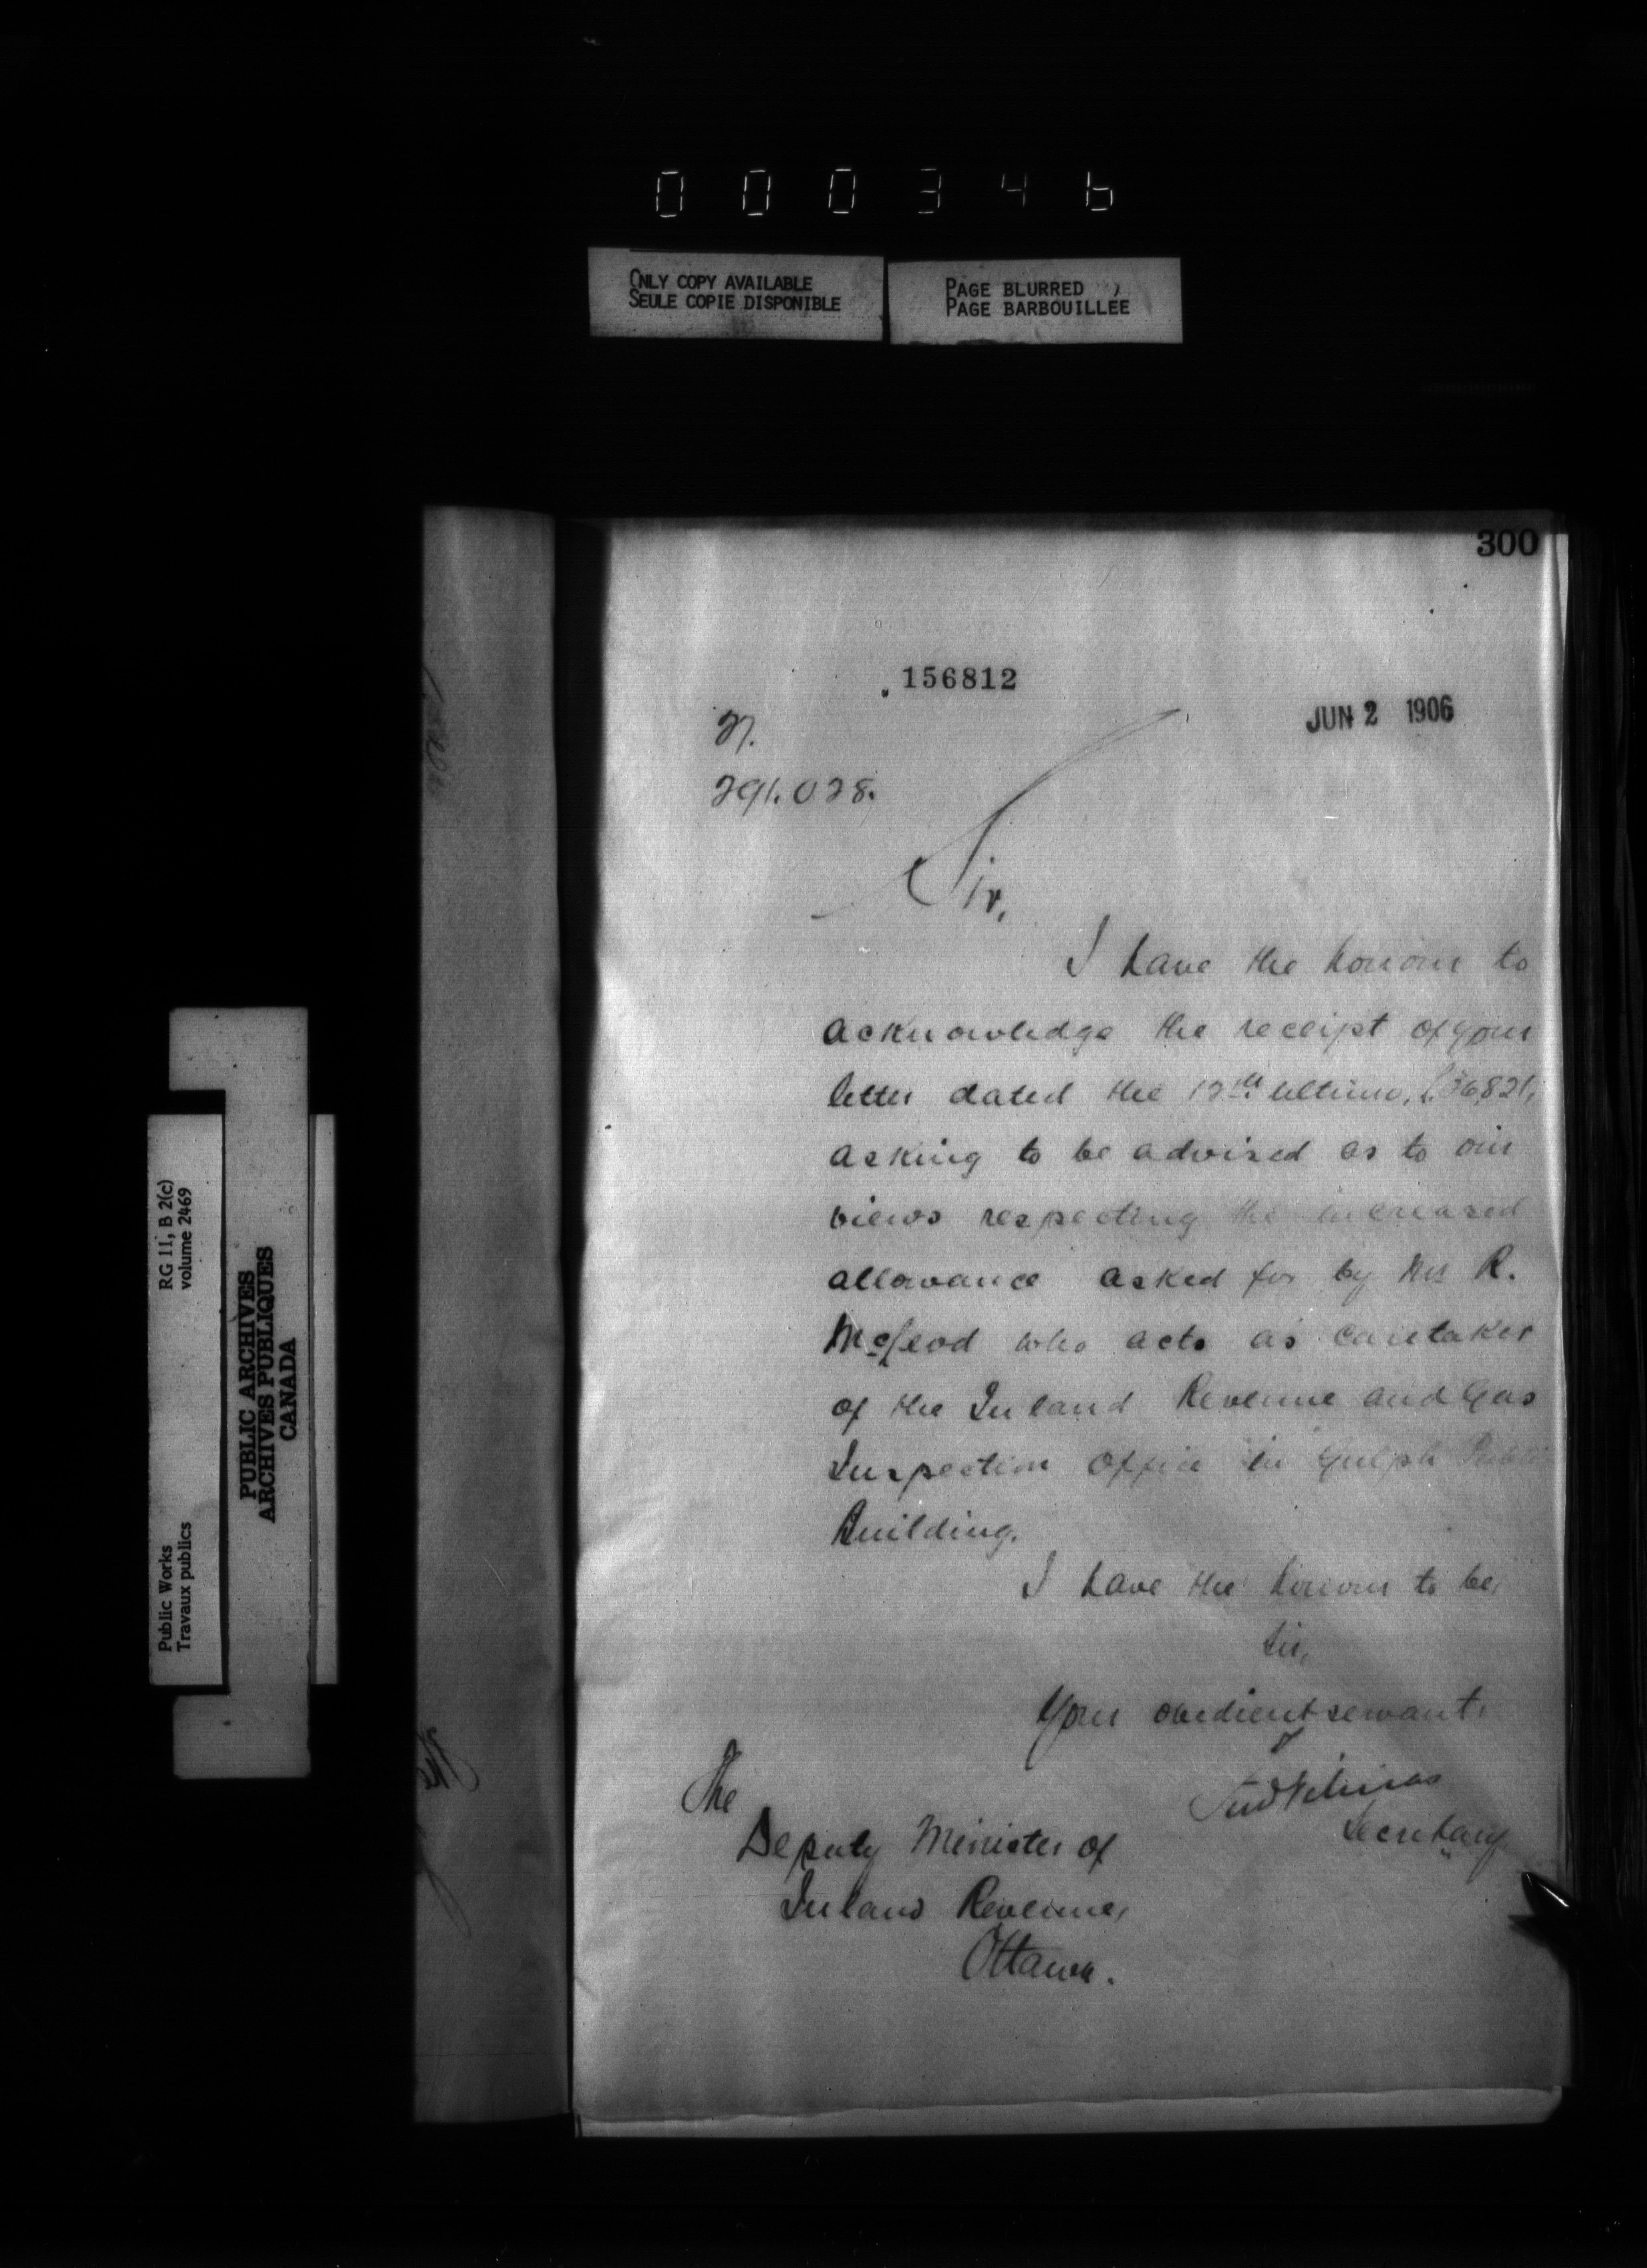 000346
ONLY COPY AVAILABLE
SEULE COPIE DISPONIBLE
PAGE BLURRED
PAGE BARBOUILLEE
300
156812
JUN 2 1906
291.028.
Sir,
I have the honour to
acknowledge the receipt of your
letter dated the 12th ultimo, (36,821,
asking to be advised as to our
views respecting the increased
allowance asked for by Mrs R.
McLeod who acts as caretaker
of the Inland Revenue and Gas
Inspection Office in Guelph Public
Building.
I have the honour to be,
Sir,
Your obedient servant,
Secretary
The
Deputy Minister of
Inland Revenue,
Ottawa.
RG 11, B 2(c)
volume 2469
Public Works
Travaux publics
PUBLIC ARCHIVES
ARCHIVES PUBLIQUES
CANADA